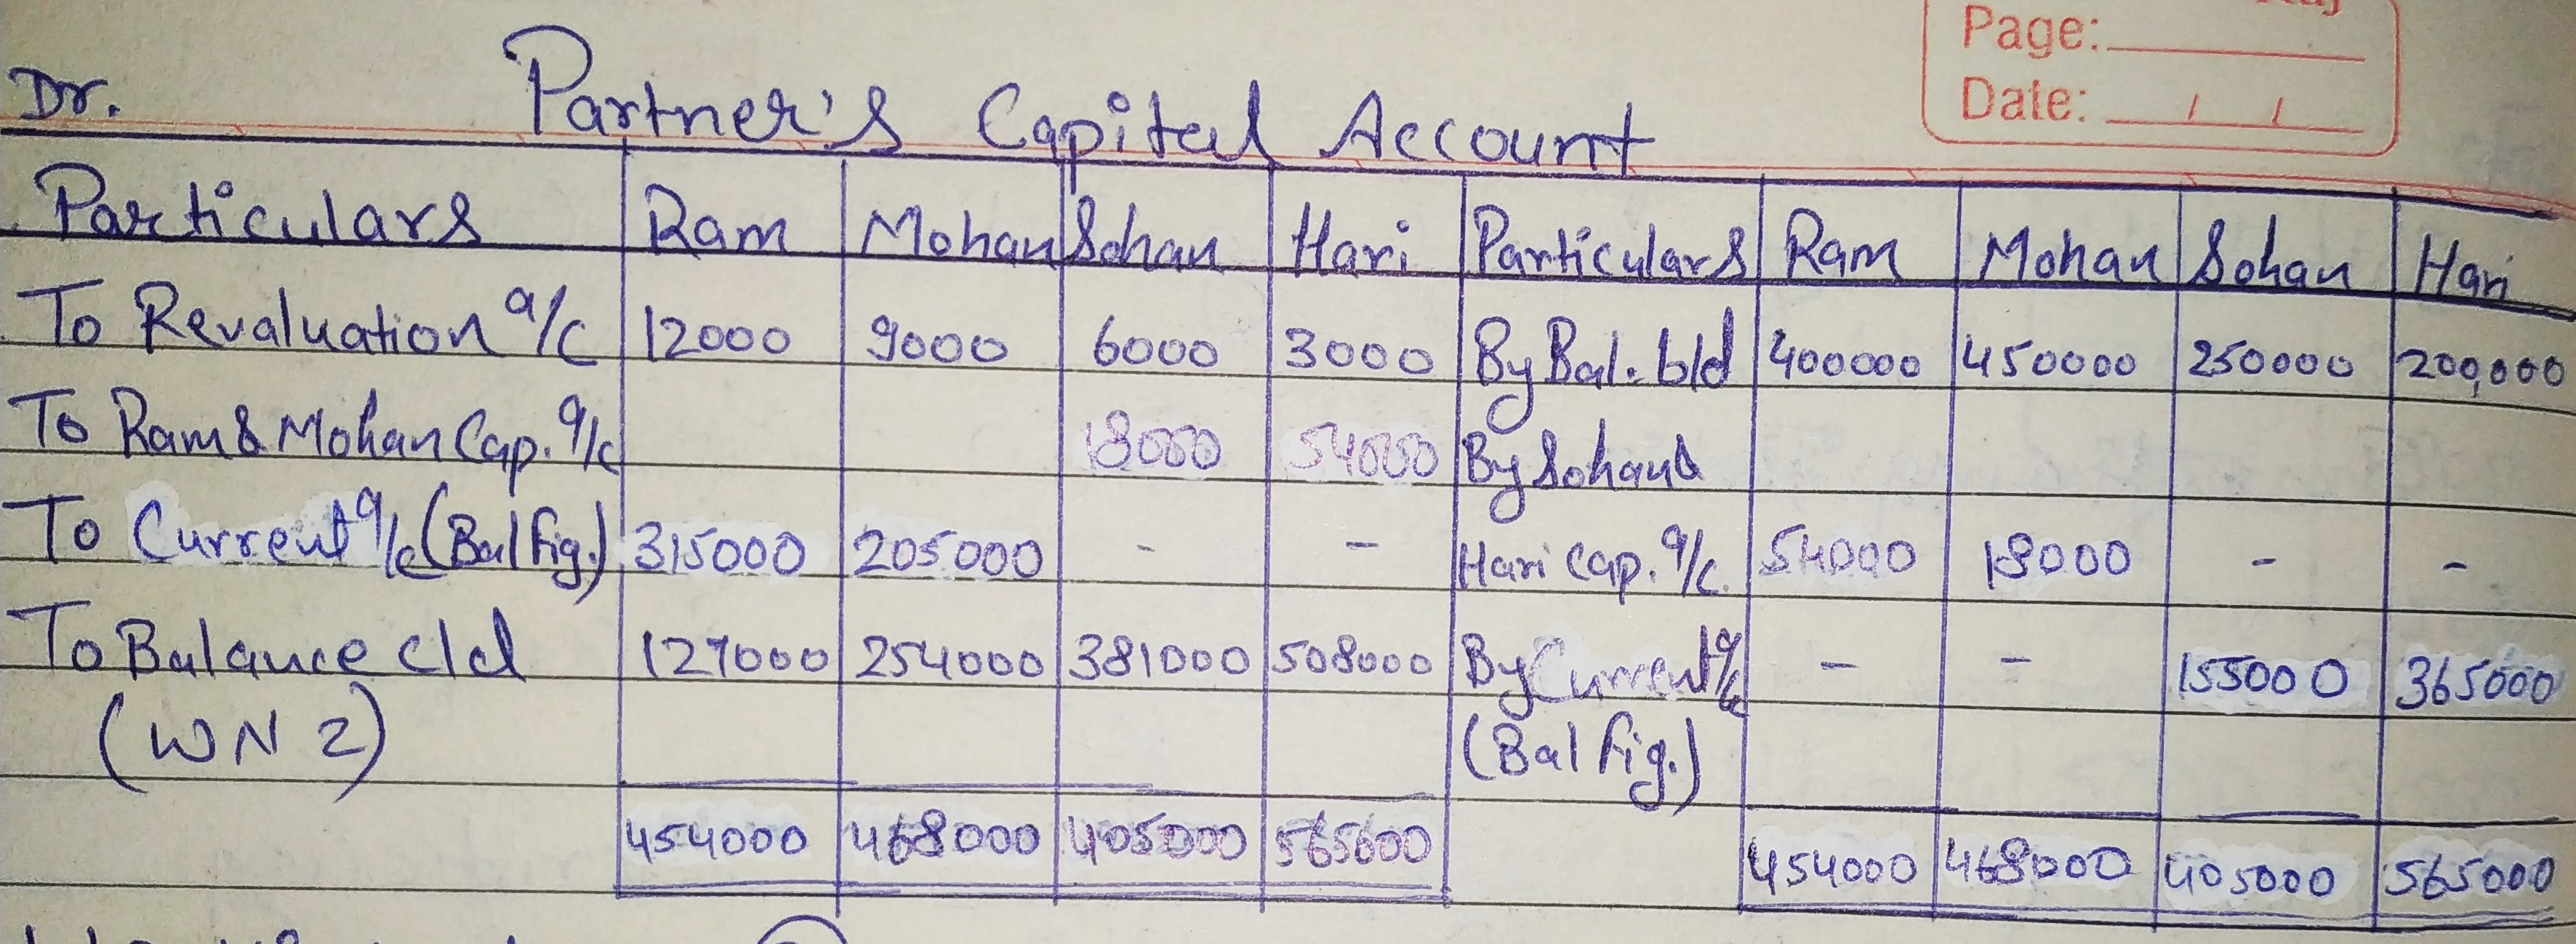 Page:
Date: / /
Dr. Partner's Capital Account
Particulars Ram Mohan Sohan Hari Particulars Ram Mohan Sohan Hari
To Revaluation a/c 12000 9000 6000 3000 By Bal. b/d 400000 450000 250000 200,000
To Ram & Mohan Cap. a/c 18000 54000 By Sohan &
To Current a/c (Bal fig.) 315000 205000 - - Hari Cap. a/c. 54000 18000 - -
To Balance c/d 127000 254000 381000 508000 By Current a/c - - 155000 365000
(WN 2) (Bal fig.)
454000 468000 405000 565000 454000 468000 405000 565000